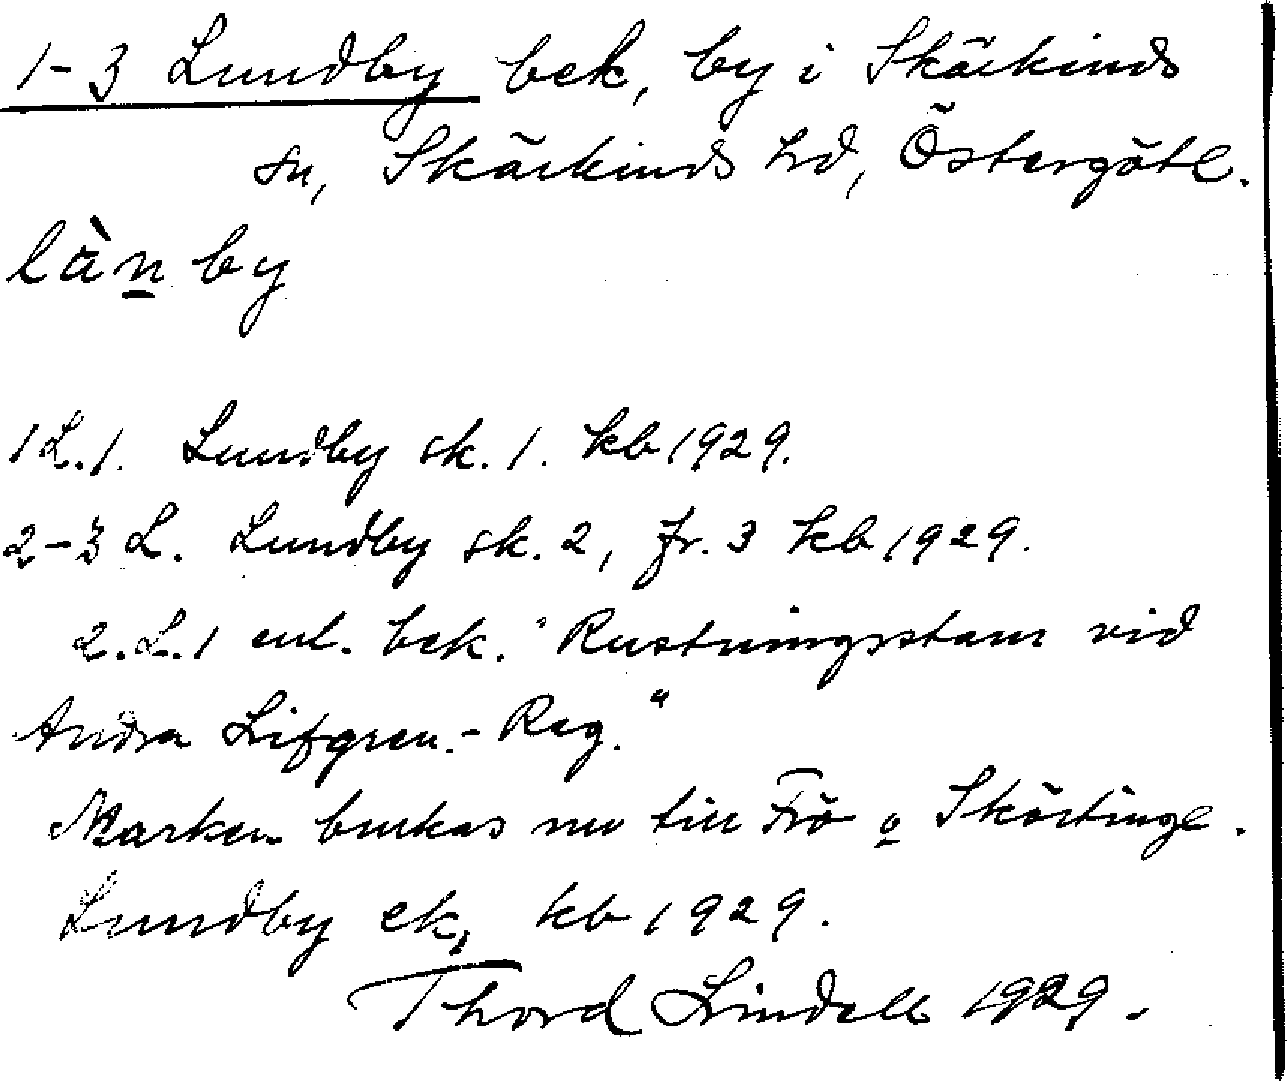 1-3 Lundby bek, by i Skärkinds
sn, Skärkinds hd, Östergötl.
làn by
1 L. 1. Lundby sk. 1. kb 1929.
2-3 L. Lundby sk. 2, fr. 3 kb 1929.
2. L. 1 enl. bek. "Rustningsstam vid
Andra Lifgren.- Reg."
Marken brukas nu till Frö o Skörtinge.
Lundby ek, kb 1929.
Thord Lindell 1929.